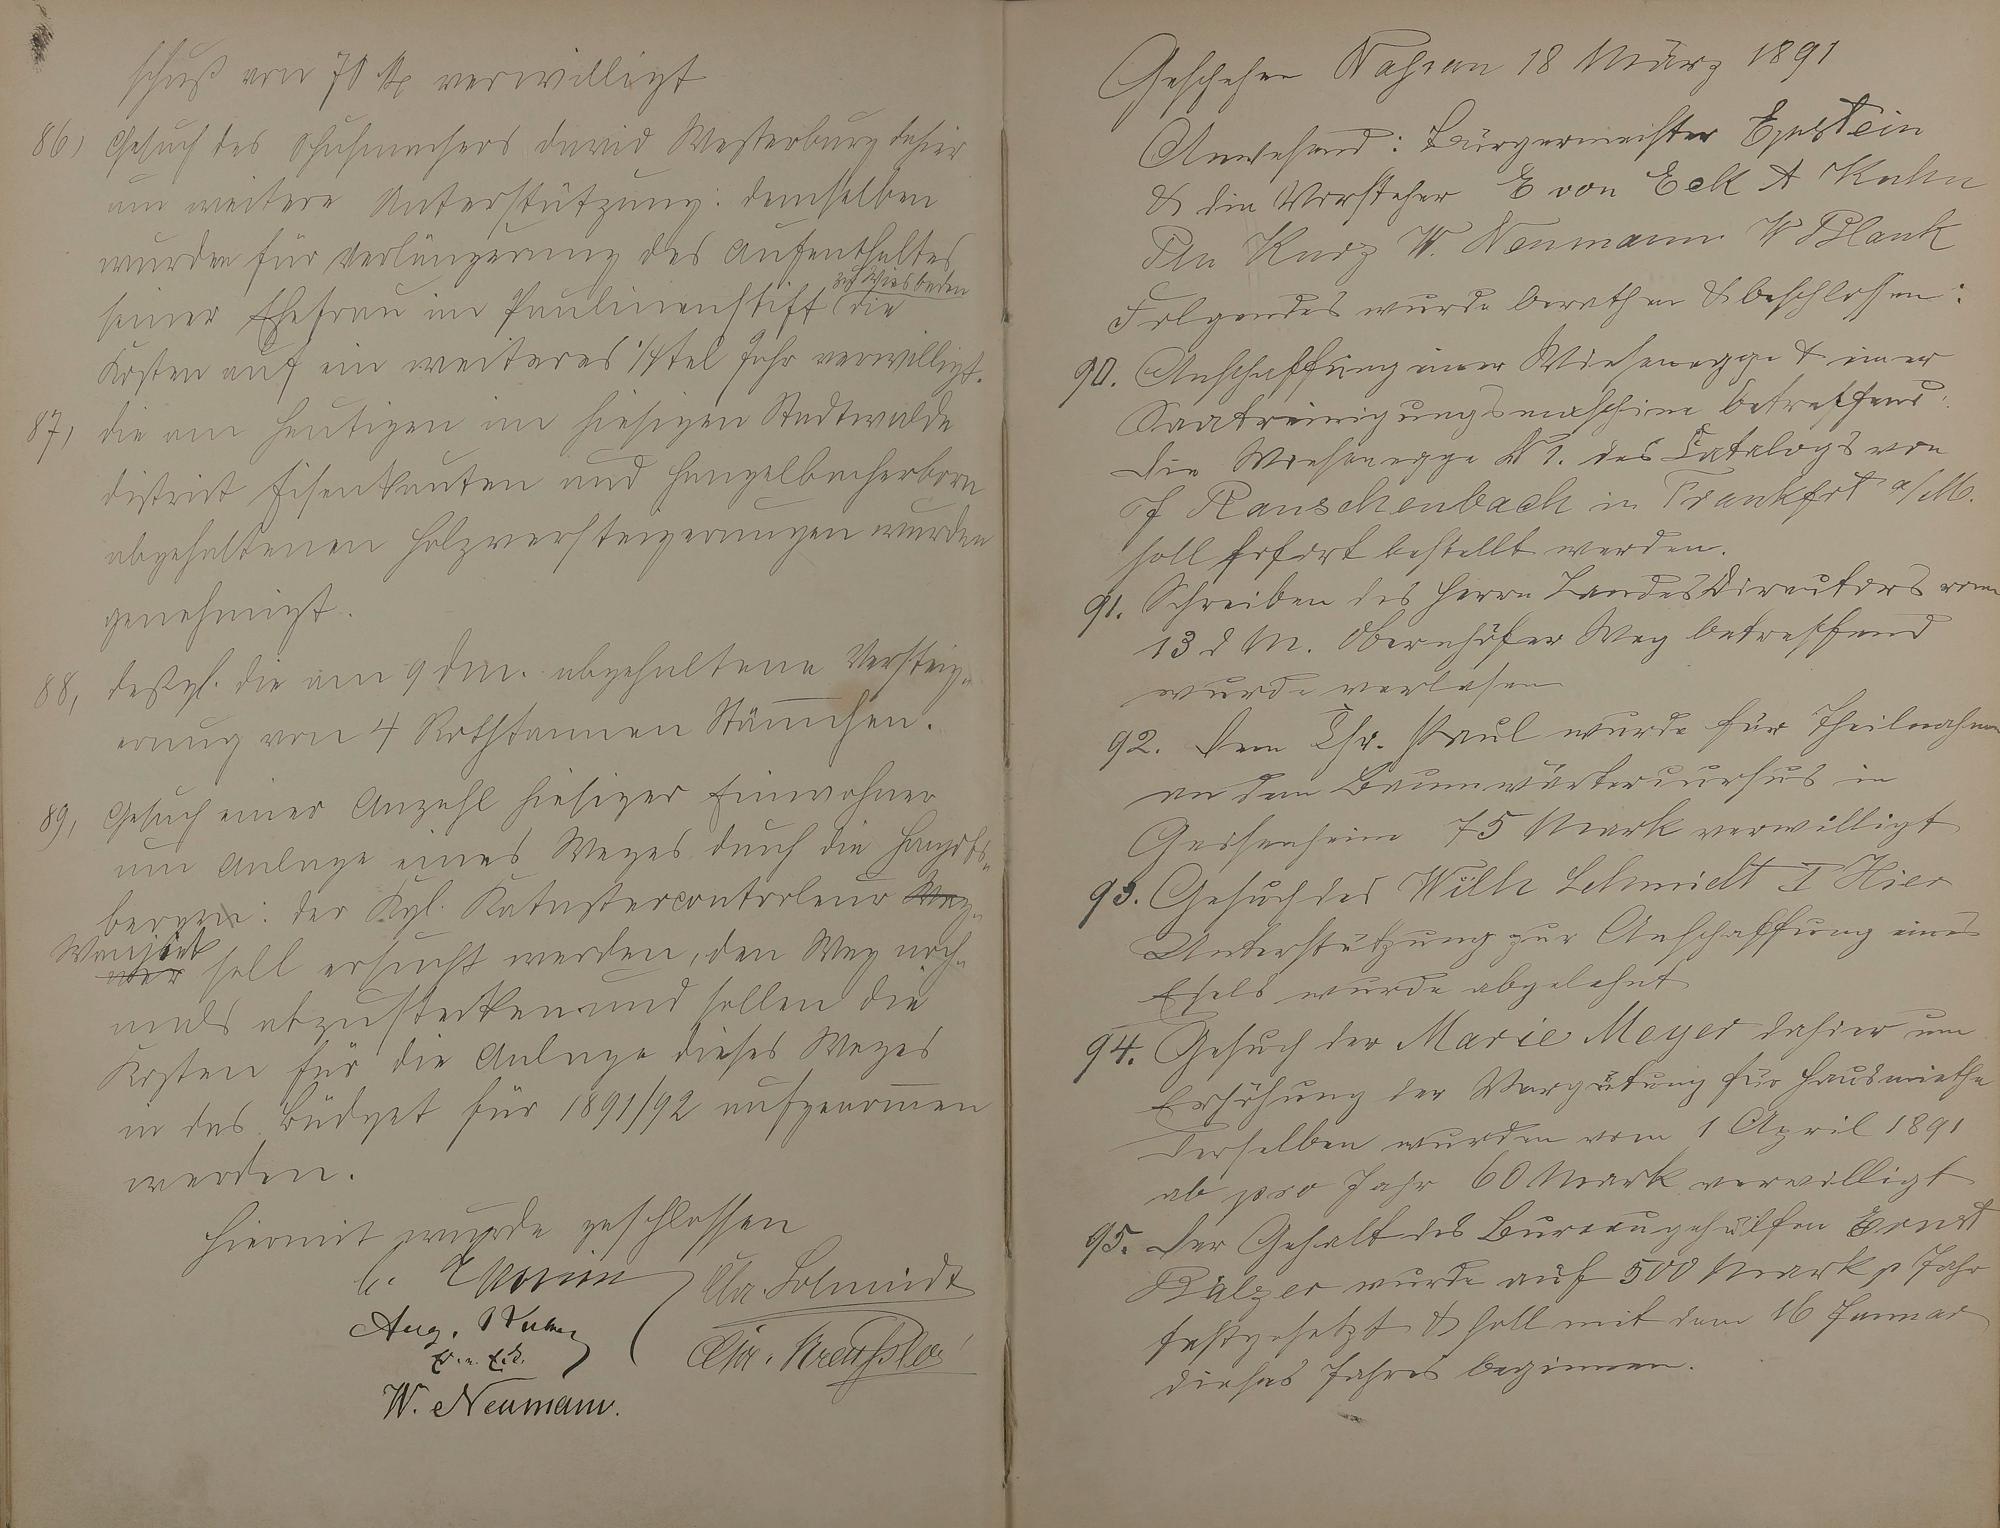 schuß von 70 M verwilligt
86, Gesuch des Schuhmachers David Westerburg dahier
um weitere Unterstützung: demselben
wurden für Verlängerung des Aufenthaltes
zu Wiesbaden
seiner Ehefrau im Paulinenstift die
Kosten auf ein weiteres 1/4tel Jahr verwilligt.
87, die am heutigen im hiesigen Stadtwalde
District Eisenkauten und Hengelbacherborn
abgehaltenen Holzversteigerungen wurden
genehmigt.
88, deßgl. die am 9 dM. abgehaltene Versteig-
erung von 4 Rothtannen Stämmchen.
89, Gesuch einer Anzahl hiesiger Einwohner
um Anlage eines Weges durch die
bergen: der Kgl. Katastercontroleur
soll ersucht werden, den Weg noch-
mals abzustecken und sollen die
Kosten für die Anlage dieses Weges
in das Büdget für 1891/92 aufgenommen
werden.
Hiermit wurde geschlossen
Chr. Schmidt
Aug.
Chr. Kreußler
W. Neumann.
Geschehen Nassau 18 März 1891
Anwesend: Bürgermeister Epstein
& die Vorsteher E von Eck A Kuhn
Kurz W. Neumann W Blank
Folgendes wurde berathen & beschlossen:
90. Anschaffung einer Wiesenegge & einer
Saatreinigungsmaschine betreffend:
Die Wiesenegge N 1. des Catalogs von
J Rauschenbach in Frankfrt a/M.
soll sofort bestellt werden.
91. Schreiben des Herrn LandesDirectors vom
13 d M. Obernhöfer Weg betreffend
wurde verlesen
92. Dem Chr. Paul wurde für Theilnahme
an dem Baumwärtercursus in
Geisenheim 75 Mark verwilligt
93. Gesuch des Wilh Schmidt I Hier
Unterstützung zur Anschaffung eines
Esels wurde abgelehnt
94. Gesuch der Marie Meyer dahier um
Erhöhung der Vergütung für Hausmiethe
Derselben wurden vom 1 April 1891
ab pro Jahr 60 Mark verwilligt
95. Der Gehalt des Bureaugehülfen Ernst
Bälzer wurde auf 500 Mark p Jahr
festgesetzt & soll mit dem 16 Januar
dieses Jahres beginnen.